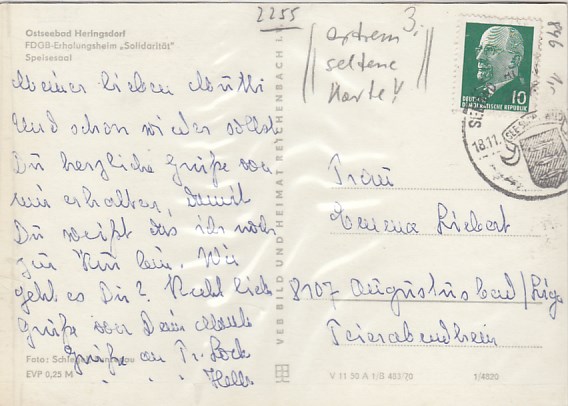 2255
3.
896
Ostseebad Heringsdorf
FDGB-Erholungsheim „Solidarität"
Speisesaal
extrem
seltene
Karte!
10
DEUTSCHE
DEMOKRATISCHE REPUBLIK
18.11.
Meiner lieben Mutti
Und schon wieder sollst
Du herzliche Grüße von
mir erhalten, damit
Du weißt das ich noch
zur Kur bin. Wie
geht es Dir? Recht lieb
Grüße von Dein
Grüße an Fr. Lock
" " Helb
Frau
Liebert
8107 Augustusbad/Lieg
Feierabendheim
VEB BILD UND HEIMAT REICHENBACH I.V.
Foto:
EVP 0,25 M
V 11 50 A 1/B 483/70
1/4820